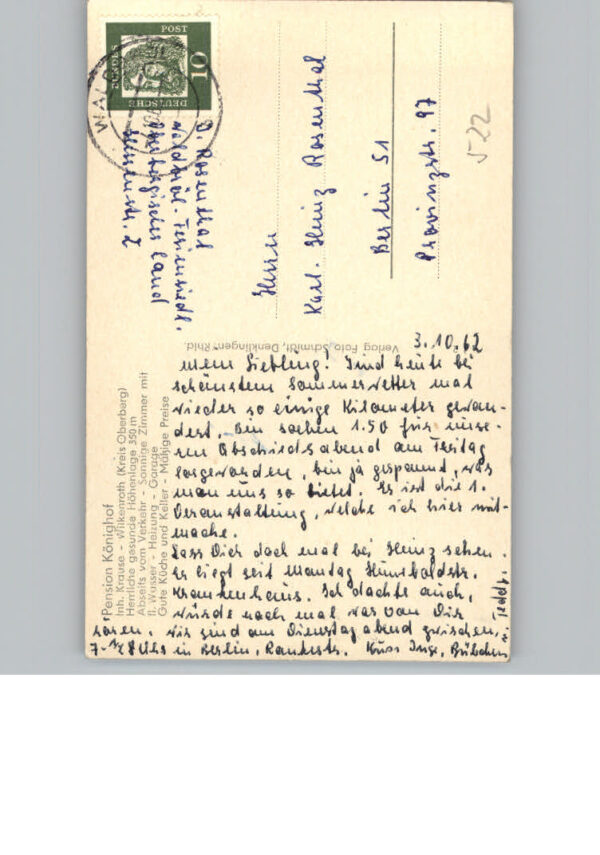 DEUTSCHE
POST
10
WALD
D. Rosenthal
Waldbröl-Feriensiedl.
Oberbergisches Land
Hessenstr. 2
522
Herrn
Karl-Heinz Rosenthal
Berlin 51
Provinzstr. 97
Verlag Foto-Schmidt, Denklingen/Rhld.
Pension Königshof
Inh. Krause - Wilkenroth (Kreis Oberberg)
Herrliche gesunde Höhenlage 350 m
Abseits vom Verkehr - Sonnige Zimmer mit
fl. Wasser - Heizung - Garage
Gute Küche und Keller - Mäßige Preise
3.10.62
Mein Liebling! Sind heute bei
schönstem Sommerwetter mal
wieder so einige Kilometer gewan-
dert. Bin soeben 1.50 für unse-
ren Abschiedsabend am Freitag
losgeworden, bin ja gespannt, was
man uns so bietet. Es ist die 1.
Veranstaltung, welche ich hier mit-
mache.
Lass Dich doch mal bei Heinz sehen.
Er liegt seit Montag Humboldtstr.
Krankenhaus. Ich dachte auch,
würde noch mal was von Dir
hören. Wir sind am Dienstag abend zwischen
7-1/2 8 Uhr in Berlin, Rankestr. Kuss Inge, Bübchen
u. Teddy.